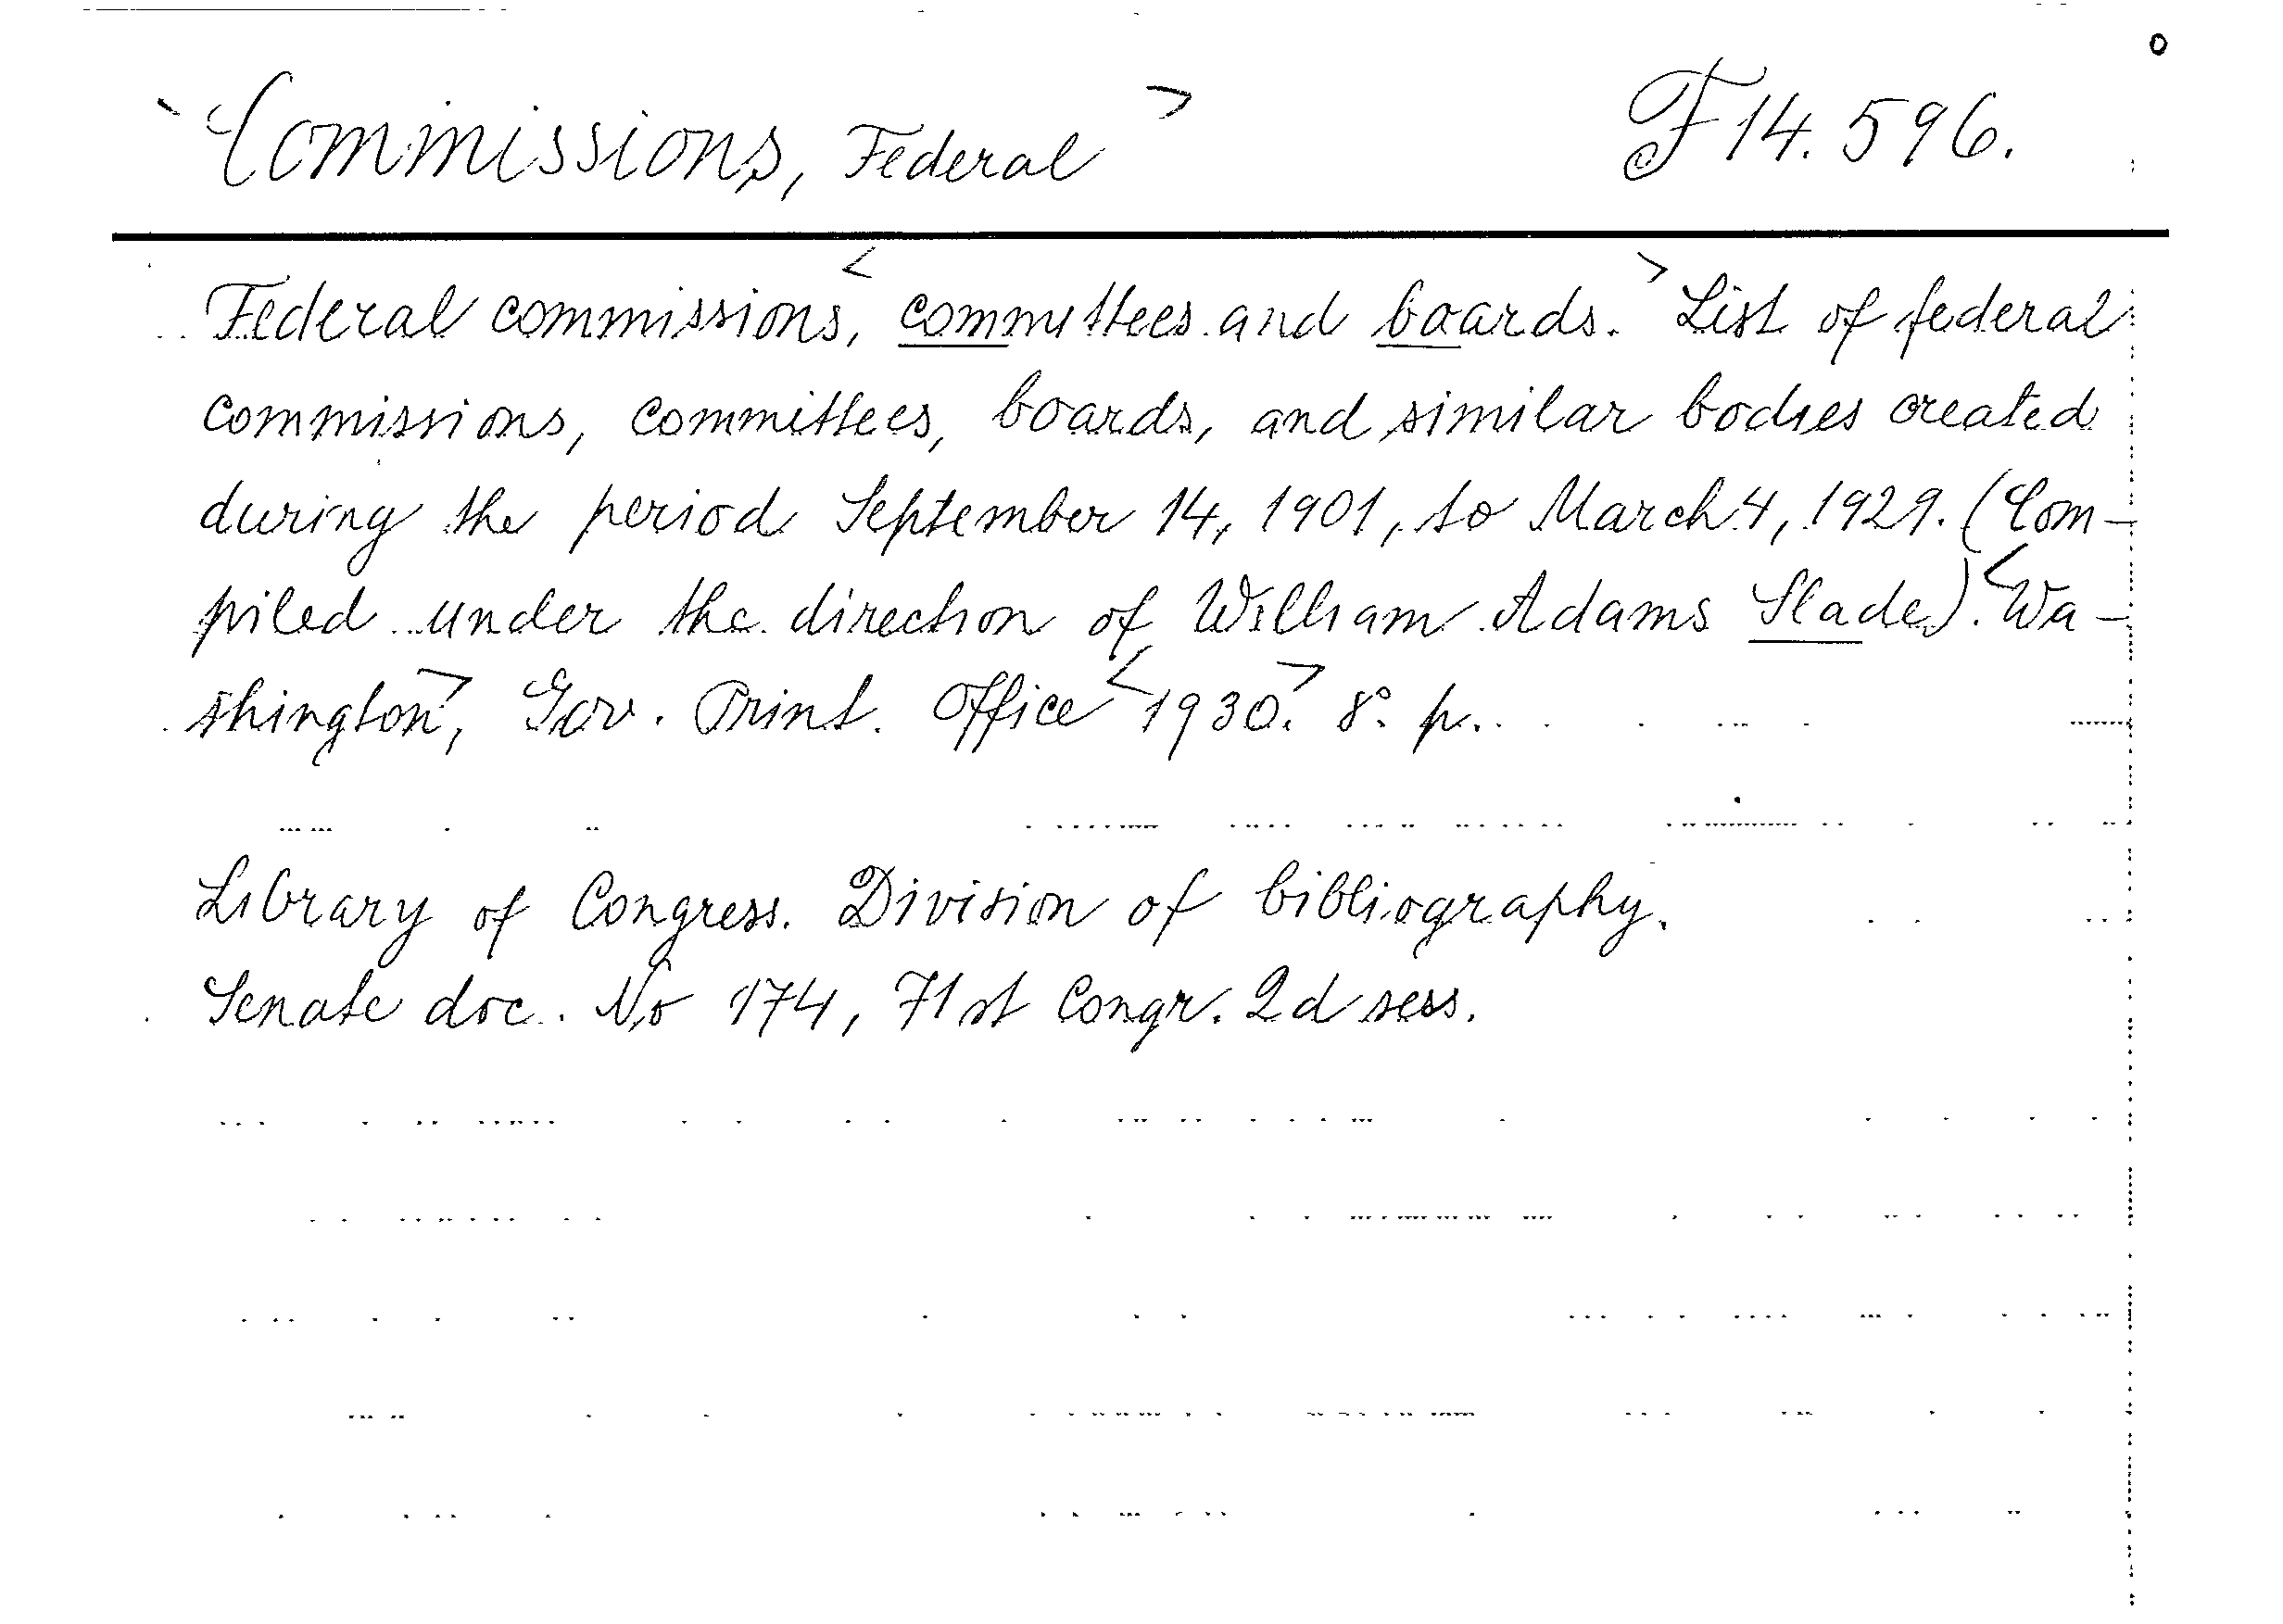 Commissions, Federal> F 14.596.
Federal commissions, <committees and boards.> List of federal
commissions, committees, boards, and similar bodies created
during the period September 14, 1901, to March 4, 1929. (Com-
piled under the direction of William Adams Slade). <Wa-
shington>, Gov. Print. Office <1930.> 8° p.
Library of Congress. Division of bibliography.
Senate doc. No 174, 71st Congr. 2d sess.